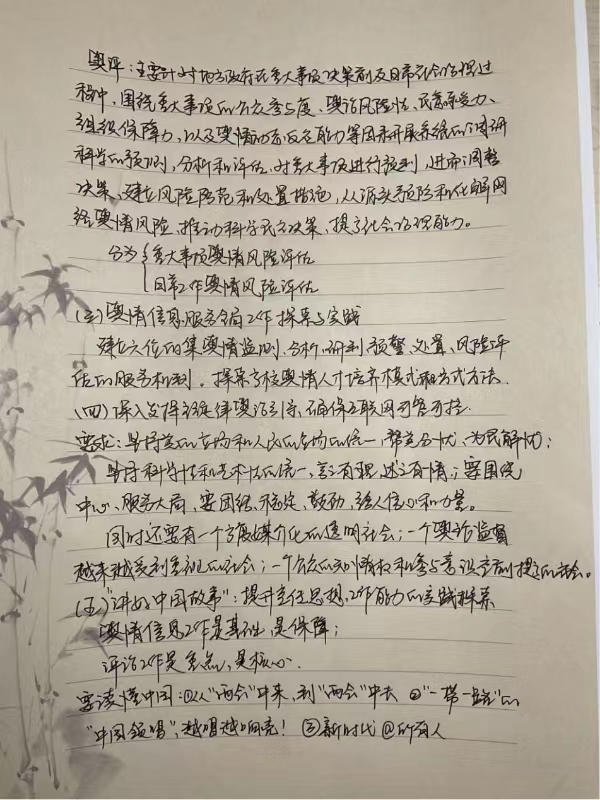 舆评：主要针对地方政府在重大事项决策前及日常社会治理过
程中，围绕重大事项的公众参与度、舆论风险性、民意承受力、
组织保障力，以及舆情动态反应能力等因素开展系统的调研
科学的预测，分析和评估。对重大事项进行预判，进而调整
决策、建立风险防范和处置措施，从源头预防和化解网
络舆情风险，推动科学民主决策、提高社会治理能力。
分为 重大事项舆情风险评估
日常工作舆情风险评估
(三)舆情信息服务全局工作探索与实践
建立六位的集舆情监测、分析、研判、预警、处置、风险评
估的服务机制。探索高校舆情人才培养模式和方式方法.
(四)深入发挥主旋律舆论引导、确保互联网可管可控.
要求：坚持党的立场和人民的立场的统一，帮党分忧、为民解忧；
坚持科学性和艺术性的统一，言之有理，述之有情；要围绕
中心、服务大局，要团结、稳定、鼓劲，给人信心和力量。
同时还要有一个高度媒介化的透明社会；一个舆论监督
越来越受到重视的社会；一个公众的知情权和参与意识空前提高的社会。
(五)"讲好中国故事"：提升责任思想，工作能力的实践探索
舆情信息工作是基础，是保障；
评论工作是重点，是核心.
要读懂中国：①从"两会"中来，到"两会"中去 ②"一带一路"的
"中国领唱"，越唱越响亮！ ③新时代 @所有人